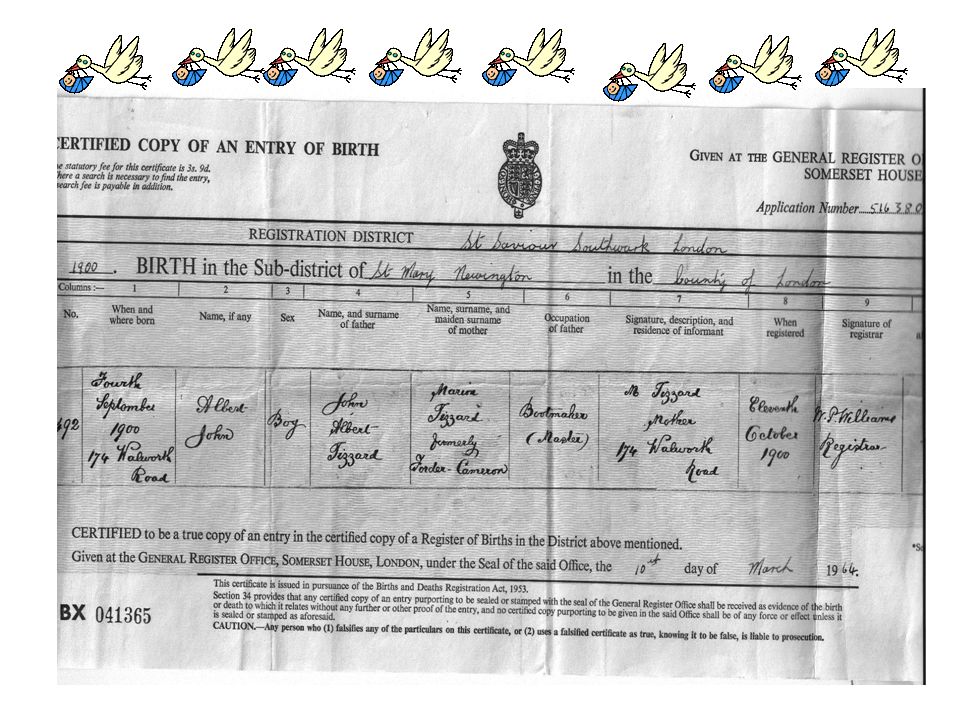 CERTIFIED COPY OF AN ENTRY OF BIRTH
statutory fee for this certificate is 3s. 9d.
here a search is necessary to find the entry,
search fee is payable in addition.
GIVEN AT THE GENERAL REGISTER O
SOMERSET HOUSE
Application Number 516380
REGISTRATION DISTRICT St Saviour Southwark London
1900 . BIRTH in the Sub-district of St Mary Newington in the County of London
Columns :— 1 2 3 4 5 6 7 8 9
No. When and where born Name, if any Sex Name, and surname of father Name, surname, and maiden surname of mother Occupation of father Signature, description, and residence of informant When registered Signature of registrar
492
Fourth September 1900 174 Walworth Road
Albert John
Boy
John Albert Tizzard
Maria Tizzard formerly Forder-Cameron
Bootmaker (Master)
M Tizzard Mother 174 Walworth Road
Eleventh October 1900
W.P. Williams Registrar
CERTIFIED to be a true copy of an entry in the certified copy of a Register of Births in the District above mentioned.
Given at the GENERAL REGISTER OFFICE, SOMERSET HOUSE, LONDON, under the Seal of the said Office, the 10th day of March 1964.
This certificate is issued in pursuance of the Births and Deaths Registration Act, 1953.
Section 34 provides that any certified copy of an entry purporting to be sealed or stamped with the seal of the General Register Office shall be received as evidence of the birth
or death to which it relates without any further or other proof of the entry, and no certified copy purporting to be given in the said Office shall be of any force or effect unless it
is sealed or stamped as aforesaid.
CAUTION.—Any person who (1) falsifies any of the particulars on this certificate, or (2) uses a falsified certificate as true, knowing it to be false, is liable to prosecution.
BX 041365